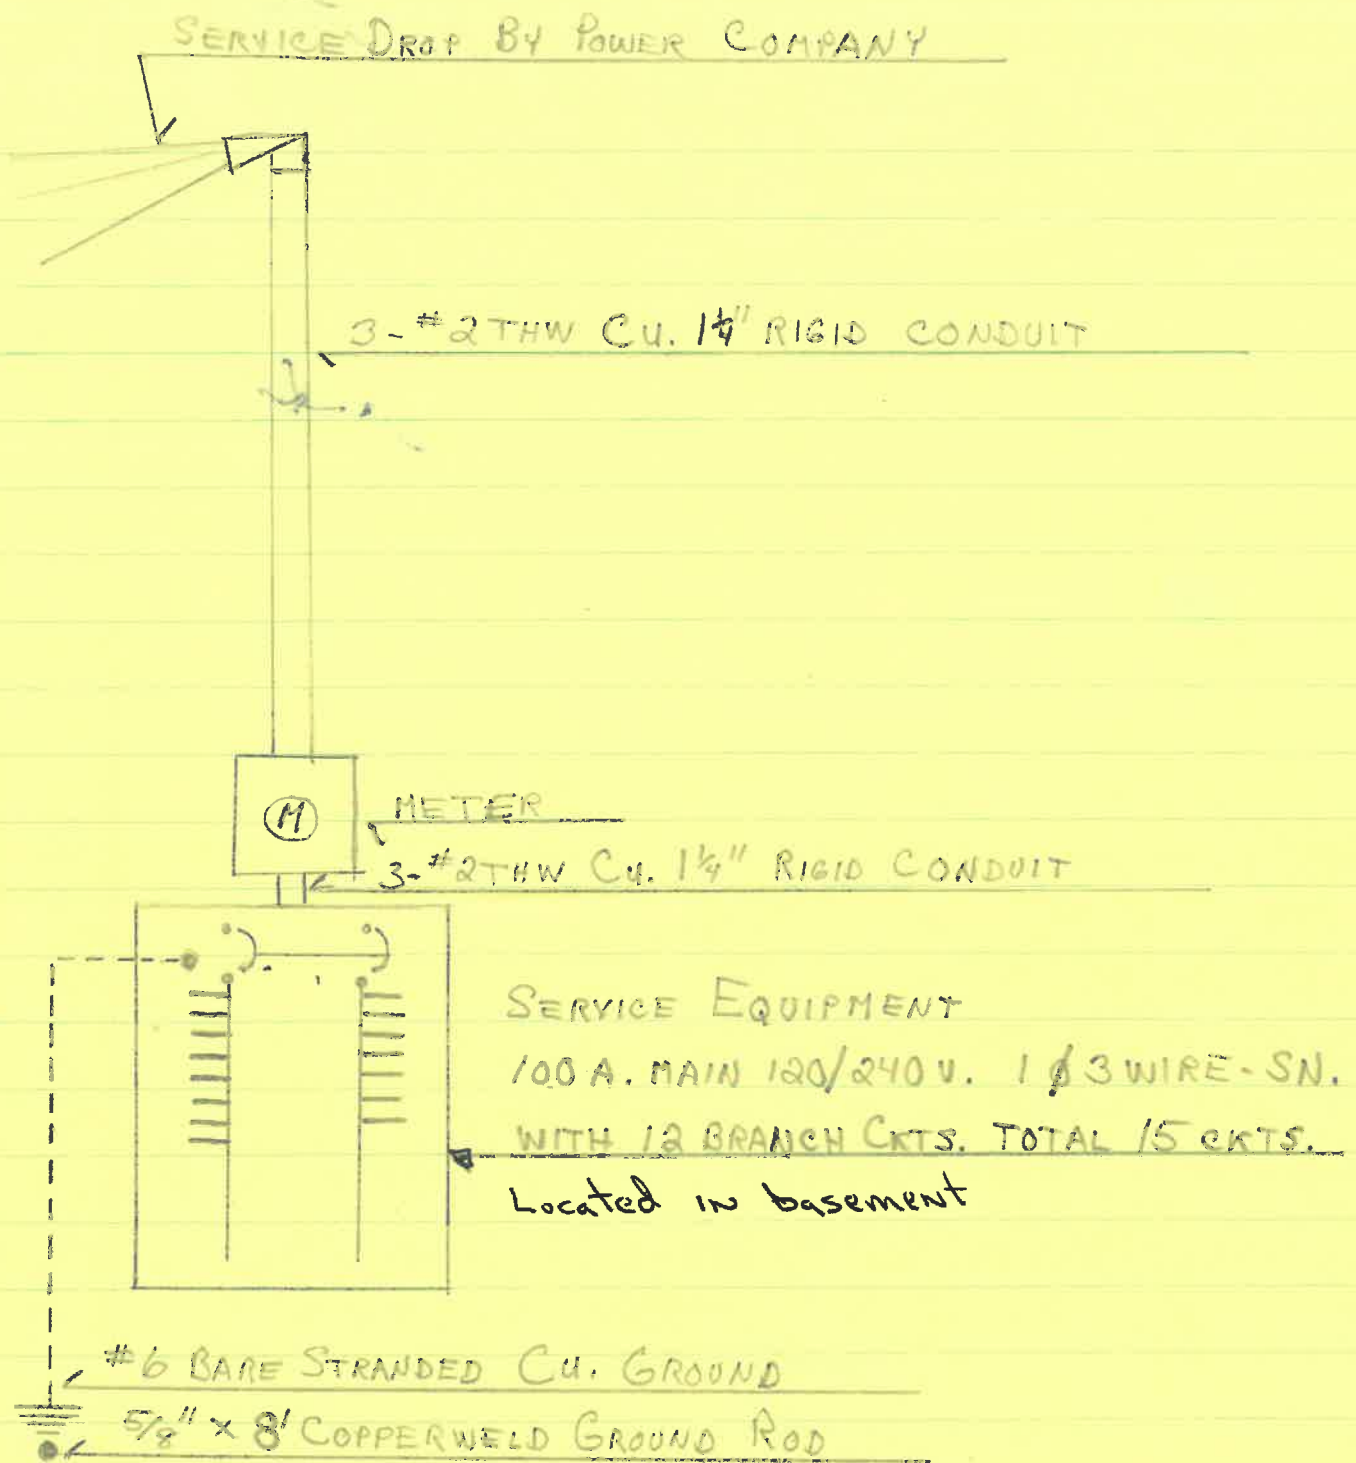 SERVICE DROP BY POWER COMPANY
3-#2 THW CU. 1¼" RIGID CONDUIT
M
METER
3-#2 THW CU. 1¼" RIGID CONDUIT
SERVICE EQUIPMENT
100 A. MAIN 120/240 V. 1 ∅ 3 WIRE-SN.
WITH 12 BRANCH CKTS. TOTAL 15 CKTS.
Located in basement
#6 BARE STRANDED CU. GROUND
5/8" x 8' COPPERWELD GROUND ROD